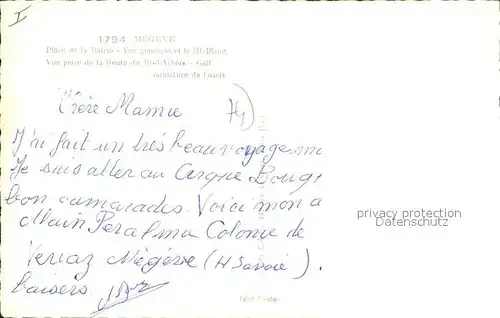 I
1794 MÉGÈVE
Place de la Mairie - Vue générale et le Mt-Blanc
Vue prise de la Route du Mt-d'Arbois - Golf
miniature de l'oasis
Chère Mamie
74)
J'ai fait un très beau voyage. m
Je suis aller au Cirque Boug
bon camarades. Voici mon a
Alain Peral ma Colonie de
Veriaz Mégève (H Savoie).
baisers
privacy protection
by www.delcampe.net